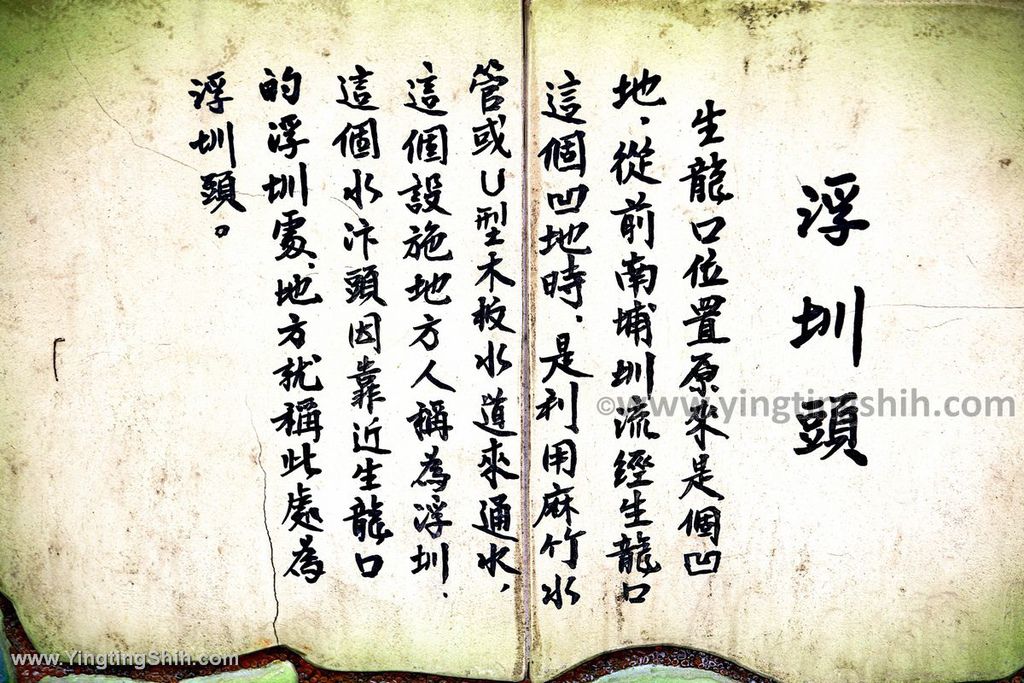 浮圳頭
生龍口位置原來是個凹
地、從前南埔圳流經生龍口
這個凹地時、是利用麻竹水
管或U型木板水道來通水、
這個設施地方人稱為浮圳、
這個水汴頭因靠近生龍口
的浮圳處、地方就稱此處為
浮圳頭。
©www.yingtingshih.com
www.YingtingShih.com